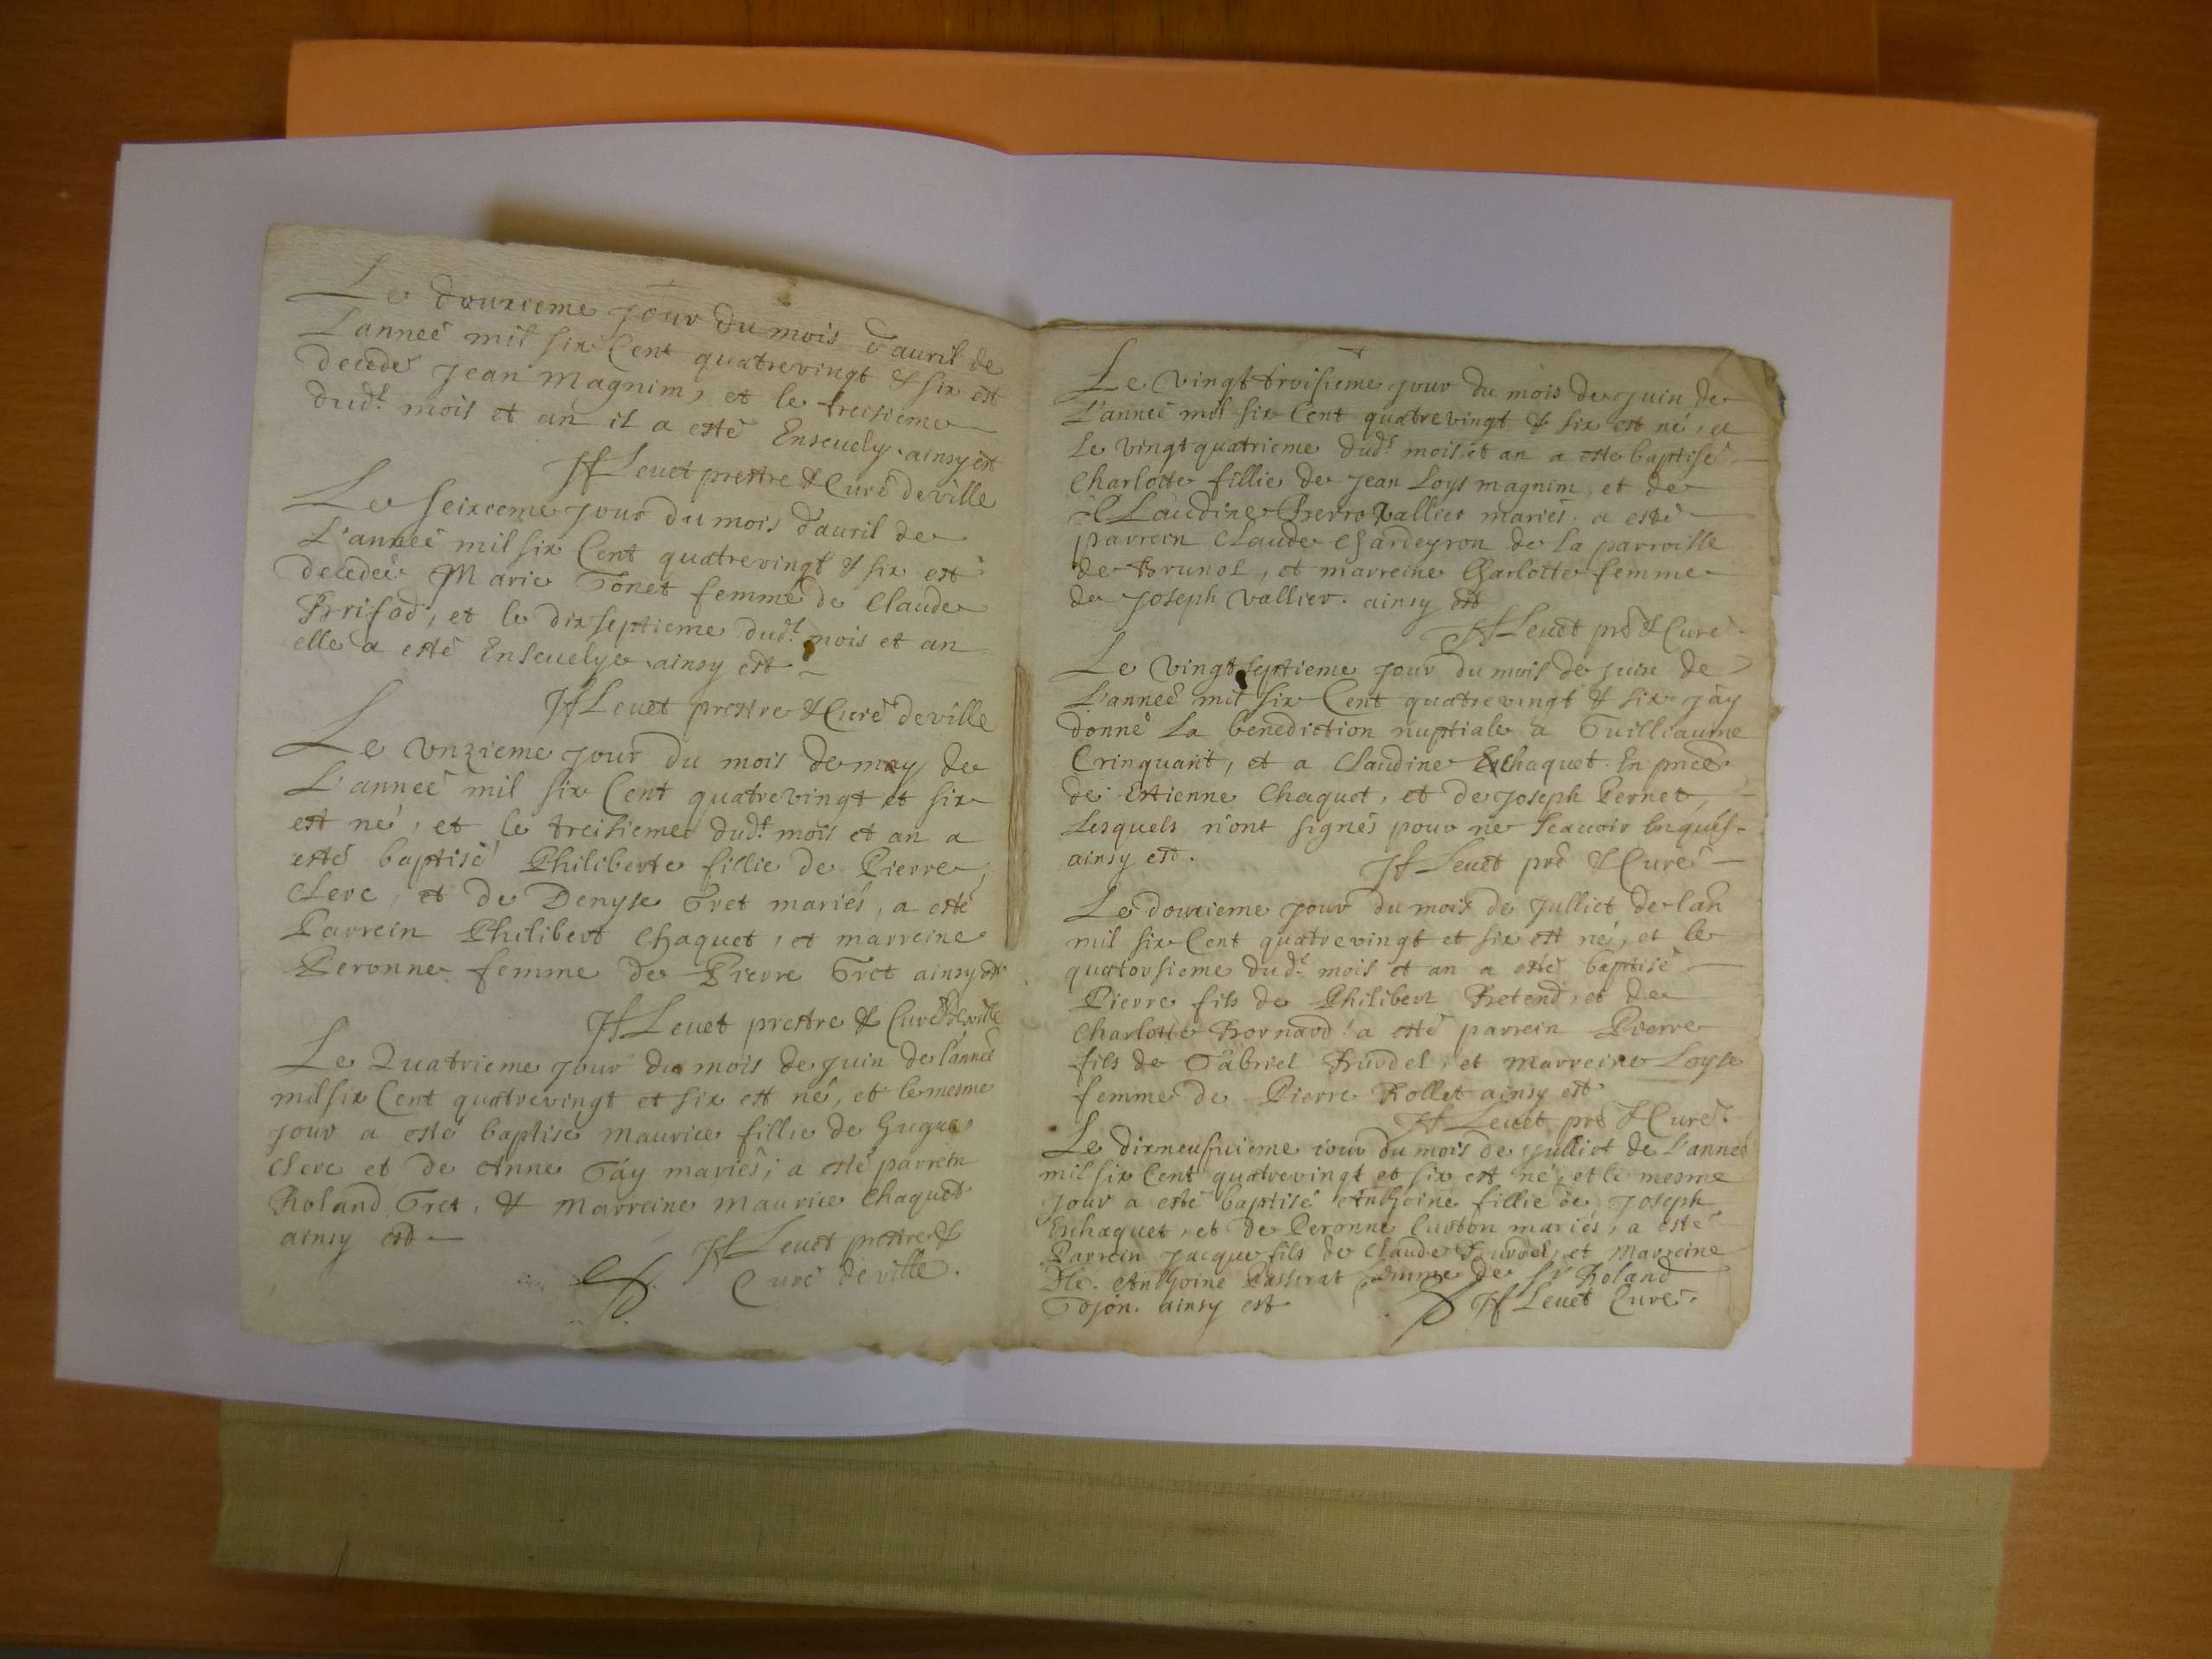 Le douzieme jour du mois d'auril de
L'anneé mil six Cent quatrevingt & six est
decedé jean magnim, et le treisieme
dud.t mois et an il a esté Enseuely ainsy est
Jf Leuet prestre & Curé de ville
Le seizieme jour du mois d'auril de
L'anneé mil six Cent quatrevingt & six est
decedeé Marie Tonet femme de Claude
Brifod, et le dixseptieme dud.t mois et an
elle a esté Enseuelye ainsy est
Jf Leuet prestre & Curé de ville
Le vnzieme jour du mois de may de
L'anneé mil six Cent quatrevingt et six
est né, et le treisieme dud.t mois et an a
esté baptisé Philiberte fillie de Pierre
Clerc, et de Denyse Gret mariés, a esté
Parrein Philibert Chaquet, et marreine
Peronne femme de Pierre Gret ainsy est
Jf Leuet prestre & Curé de ville
Le Quatrieme jour du mois de juin de l'anneé
mil six Cent quatrevingt et six est né, et le mesme
jour a esté baptisé maurice fillie de hugue
Clerc et de Anne Gay mariés, a esté parrein
Roland Gret, & marreine maurice Chaquet
ainsy est
Jf Leuet prestre &
Curé de ville.
Le vingt troisieme jour du mois de juin de
L'anneé mil six Cent quatrevingt & six est né, et
le vingtquatrieme dud.t mois et an a esté baptisé
Charlotte fillie de jean Loys magnim, et de
Claudine Vallier mariés, a esté
parrein Claude Chardeyron de la parroisse
de Brunol, et marreine Charlotte femme
de joseph Vallier. ainsy est
Jf Leuet pr̃e & Curé
Le vingtseptieme jour du mois de juin de
L'anneé mil six Cent quatrevingt & six j'ay
donné la benediction nuptiale a Guilliaume
Crinquant, et a Claudine Echaquet En pñce
de Estienne Chaquet, et de joseph Pernet,
Lesquels n'ont signés pour ne sçauoir Enquis
ainsy est.
Jf Leuet pr̃e & Curé
Le douzieme jour du mois de julliet de l'an
mil six Cent quatrevingt et six est né, et le
quatorsieme dud.t mois et an a esté baptisé
Pierre fils de Philibert Retend, et de
Charlotte Bornand a esté parrein Pierre
fils de Gabriel Burdel, et marreine Loyse
femme de Pierre Rollet ainsy est
Jf Leuet pr̃e & Curé
Le dixneufuieme jour du mois de julliet de L'anneé
mil six Cent quatrevingt et six est né, et le mesme
jour a esté baptisé Anthoine fillie de joseph
Echaquet, et de Peronne Curton mariés, a esté
Parrein jacque fils de Claude Burdel, et marreine
Dlle. Anthoine Passerat femme de Sr Roland
Gojon. ainsy est
Jf Leuet Curé.